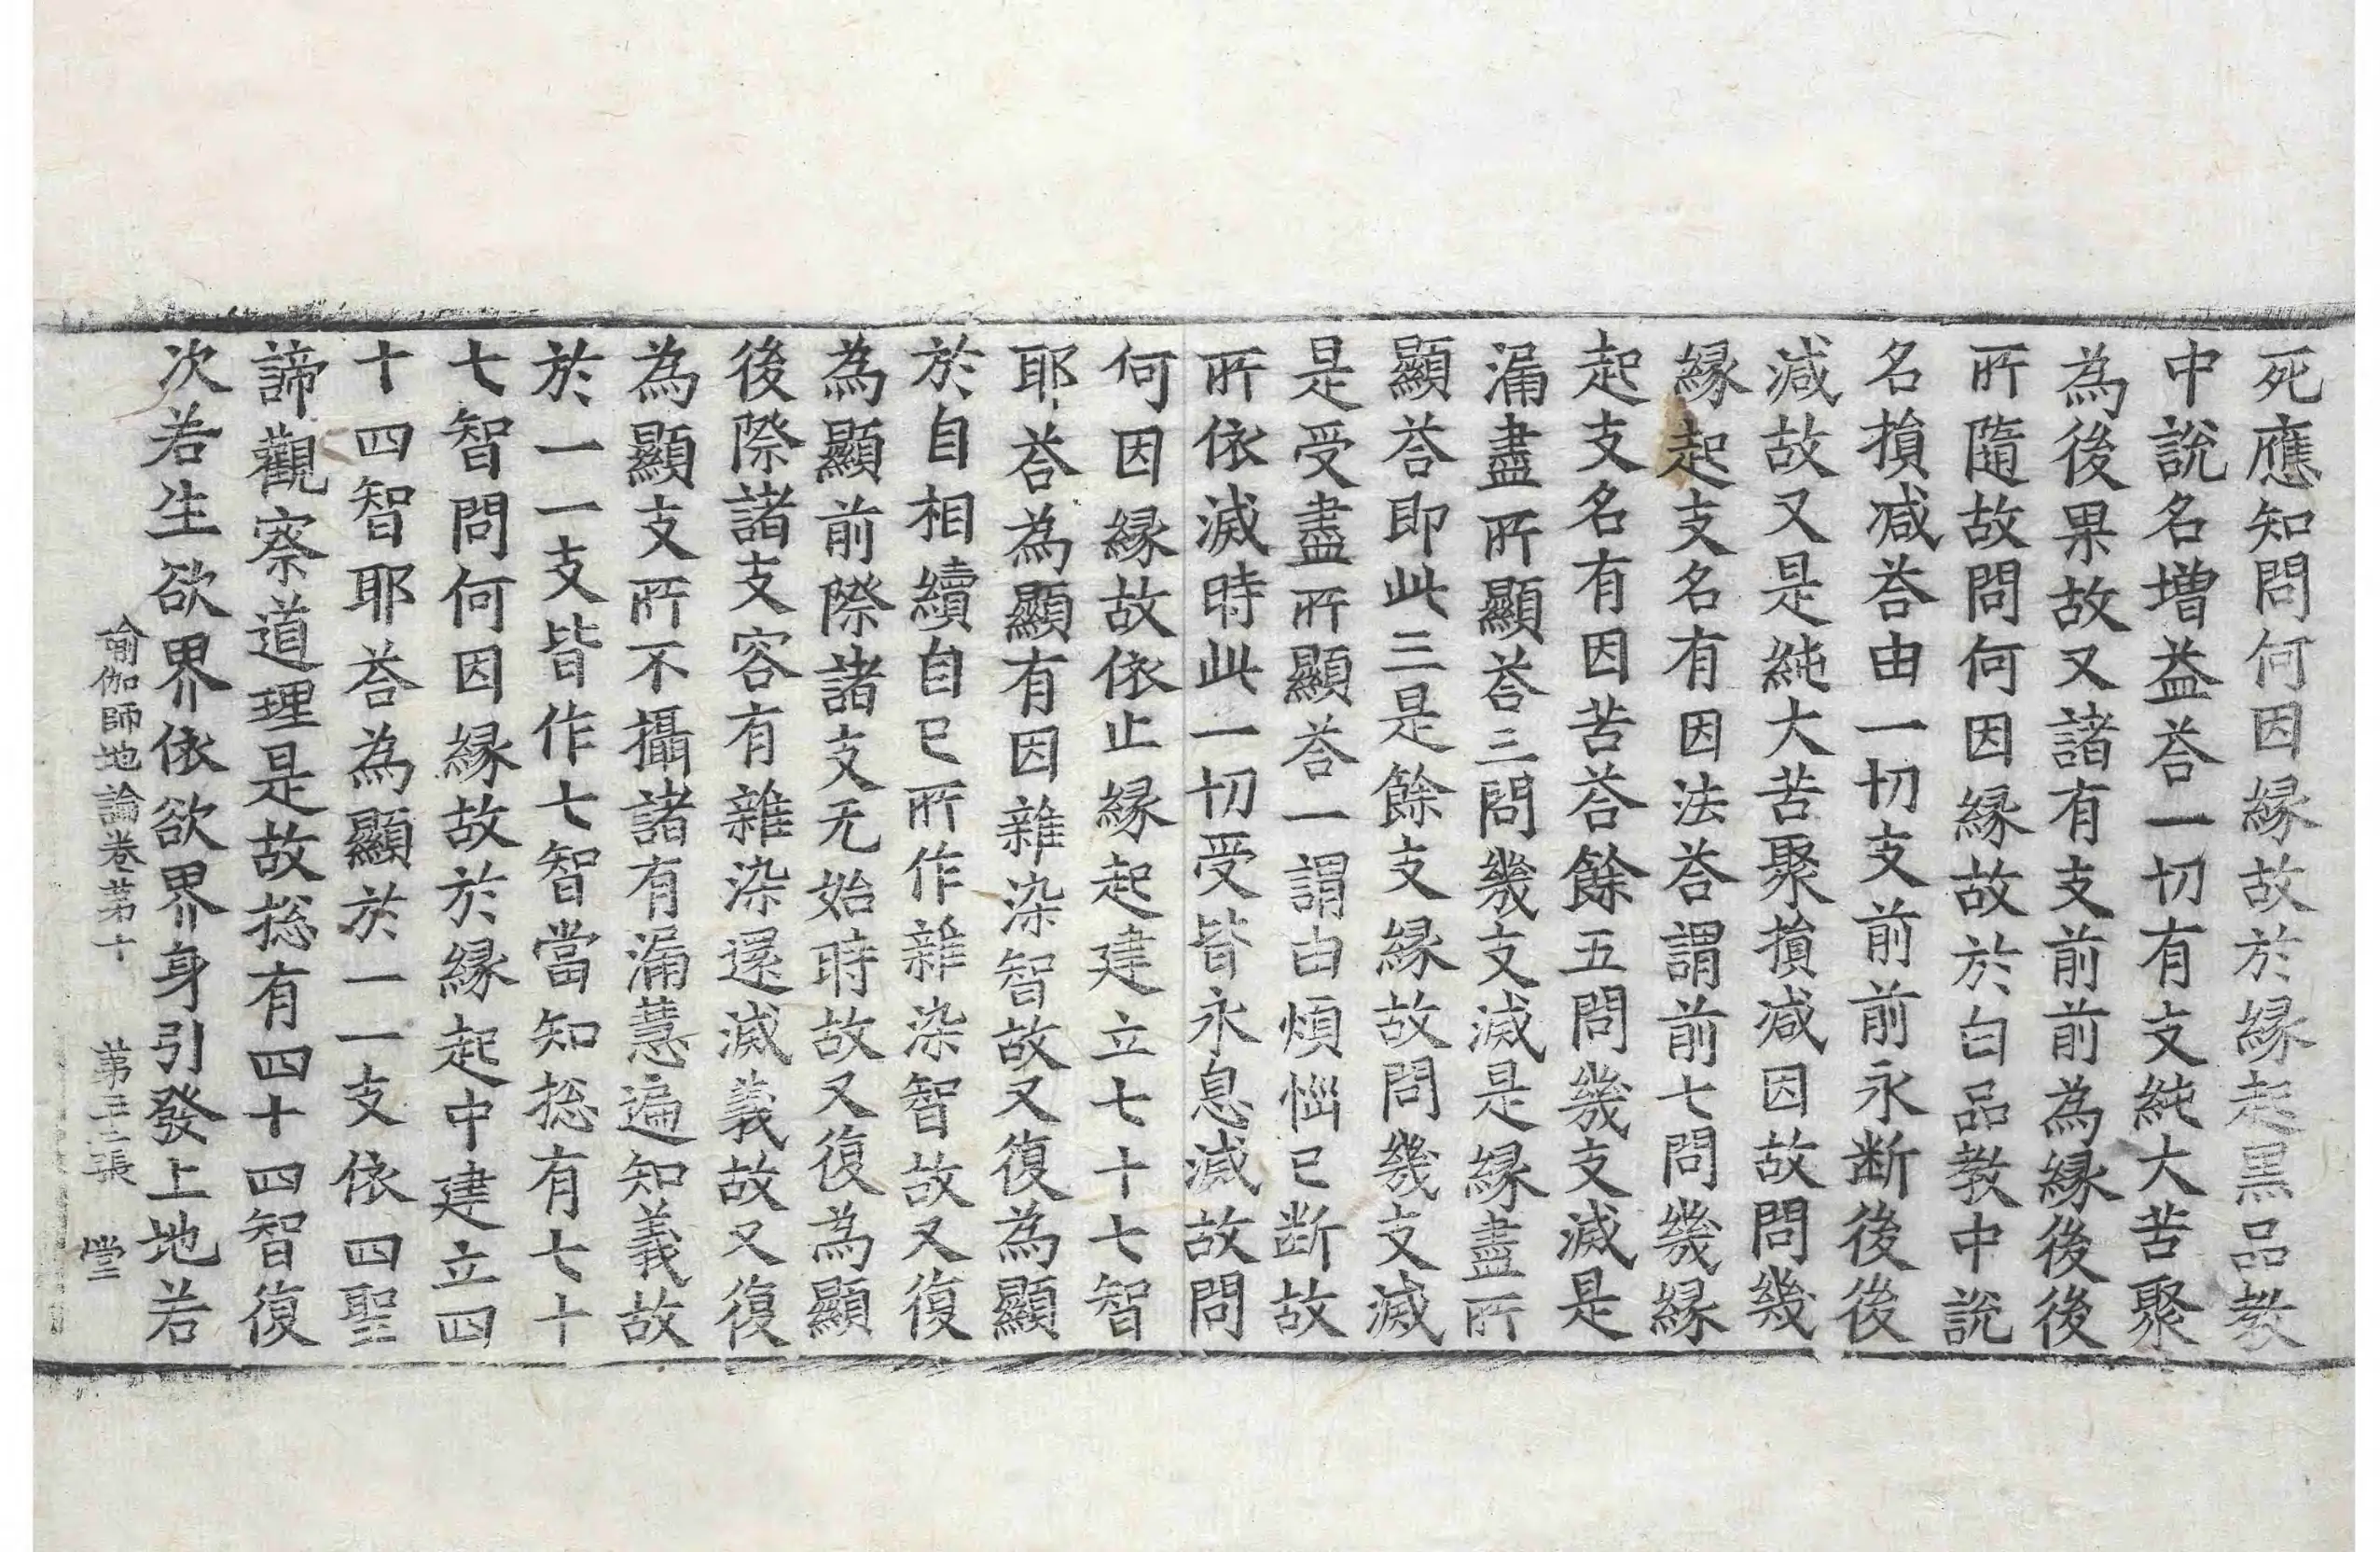 死應知問何因縁故於縁起黒品教
中說名增益荅一切有支純大苦聚
為後果故又諸有支前前為縁後後
所隨故問何因縁故於白品教中說
名損減荅由一切支前前永断後後
減故又是純大苦聚損減因故問幾
縁起支名有因法荅謂前七問幾縁
起支名有因苦荅餘五問幾支滅是
漏盡所顯荅三問幾支滅是縁盡所
顯荅即此三是餘支縁故問幾支滅
是受盡所顯荅一謂由煩惱已断故
所依滅時此一切受皆永息滅故問
何因縁故依止縁起建立七十七智
耶荅為顯有因雜染智故又復為顯
於自相續自已所作雜染智故又復
為顯前際諸支无始時故又復為顯
後際諸支容有雜染還滅義故又復
為顯支所不攝諸有漏慧遍知義故
於一一支皆作七智當知捴有七十
七智問何因縁故於縁起中建立四
十四智耶荅為顯於一一支依四聖
諦觀察道理是故捴有四十四智復
次若生欲界依欲界身引發上地若
瑜伽師地論卷第十 第二十二張 堂